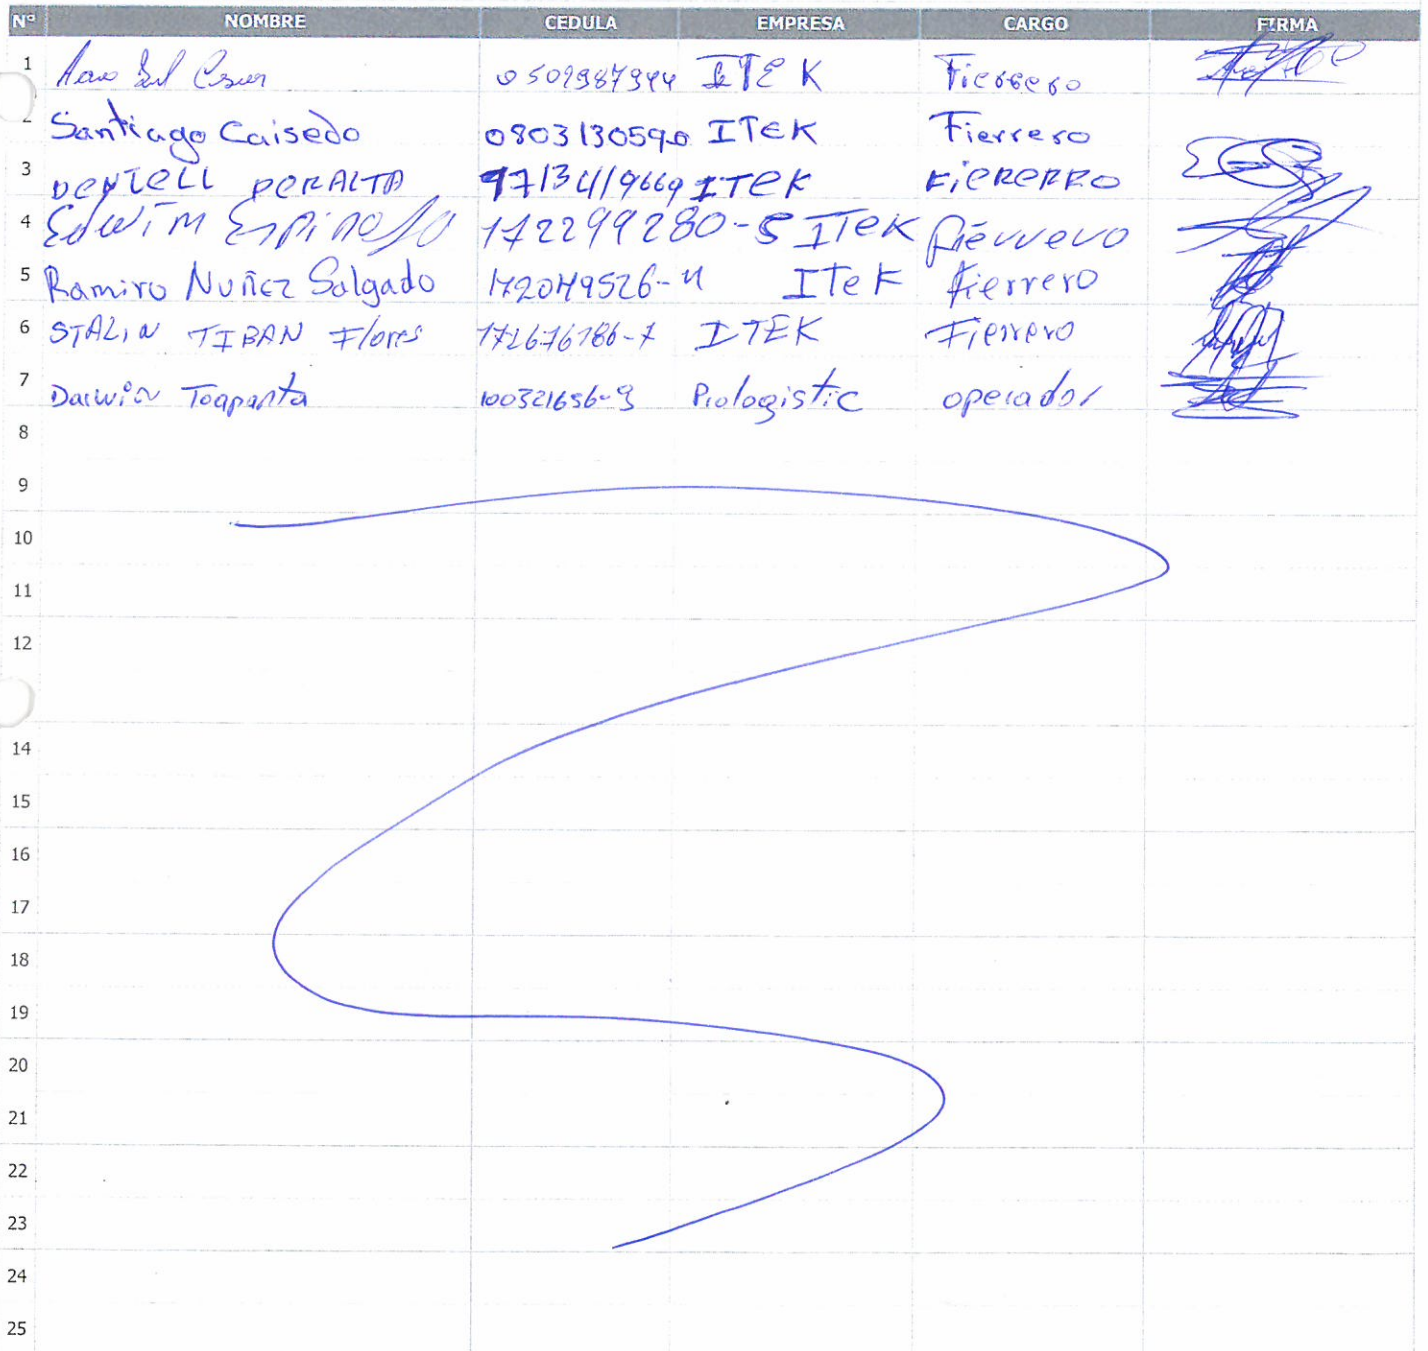 Nº NOMBRE CEDULA EMPRESA CARGO FIRMA
1 0502987944 ITEK Fierrero
2 Santiago Caisedo 0803130590 ITEK Fierrero
3 PERALTA ITEK FiERERRO
4 EDWIM ESPiNOSA 172299280-5 ITEK fierrero
5 Ramiro Nuñez Salgado ITEK fierrero
6 STALIN TIBAN Flores 171676786-7 ITEK Fierrero
7 Darwin Toapanta 100321656-9 Prologistic operador
8
9
10
11
12
14
15
16
17
18
19
20
21
22
23
24
25